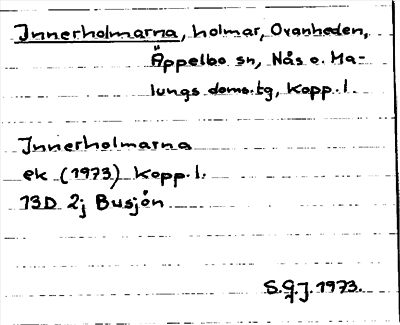 Innerholmarna, holmar, Ovanheden,
Äppelbo sn, Nås o. Ma-
lungs doms.tg, Kopp.l.
Innerholmarna
ek (1973) Kopp.l.
13D 2j Busjön
S.G.J. 1973.